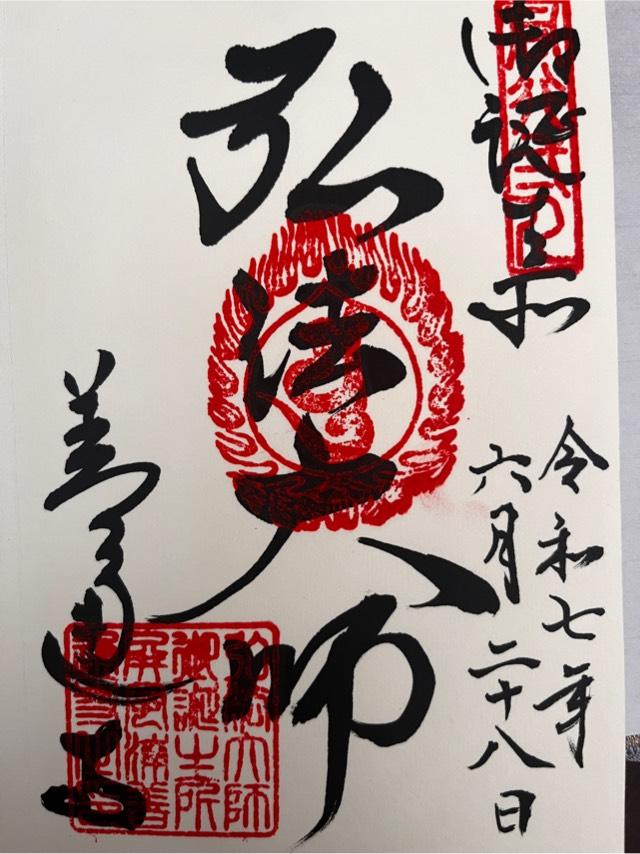 御誕生所
令和七年
六月二十八日
弘法大師
善通寺
弘法大師
御誕生所
屏風浦善